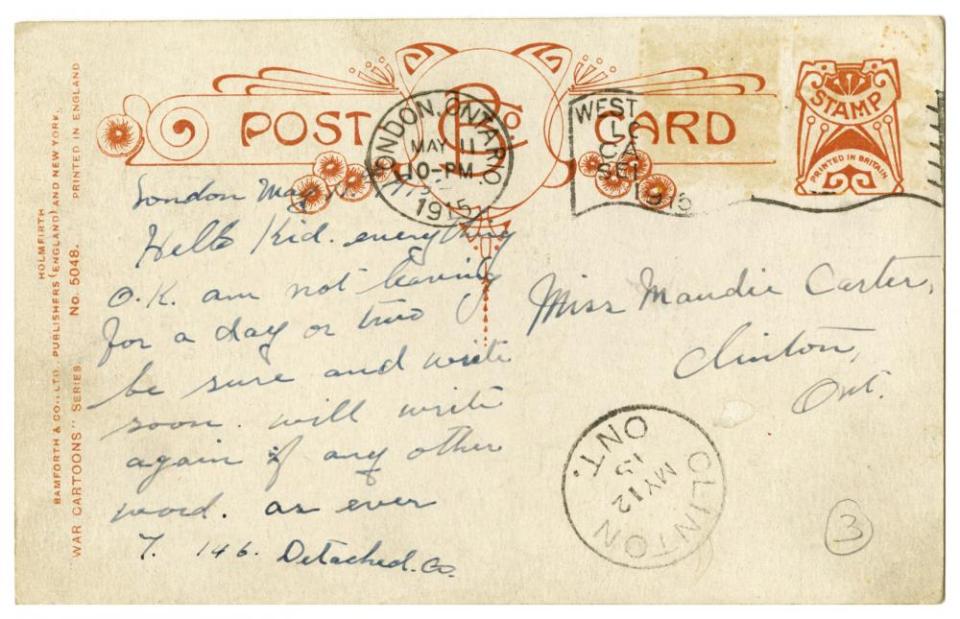 POST CARD
STAMP
PRINTED IN BRITAIN
LONDON, ONTARIO
MAY 11
10-PM
1915
WEST
LO
CA
SE
1915
London May
Hello Kid. everything
O.K. am not leaving
for a day or two
be sure and write
soon. will write
again if any other
word. as ever
7. 146. Detached. Co.
Miss Maudie Carter,
Clinton,
Ont.
CLINTON ONT.
MY 12
15
3
HOLMFIRTH
BAMFORTH & CO., LTD. PUBLISHERS (ENGLAND) AND NEW YORK.
WAR CARTOONS" SERIES No. 5048. PRINTED IN ENGLAND